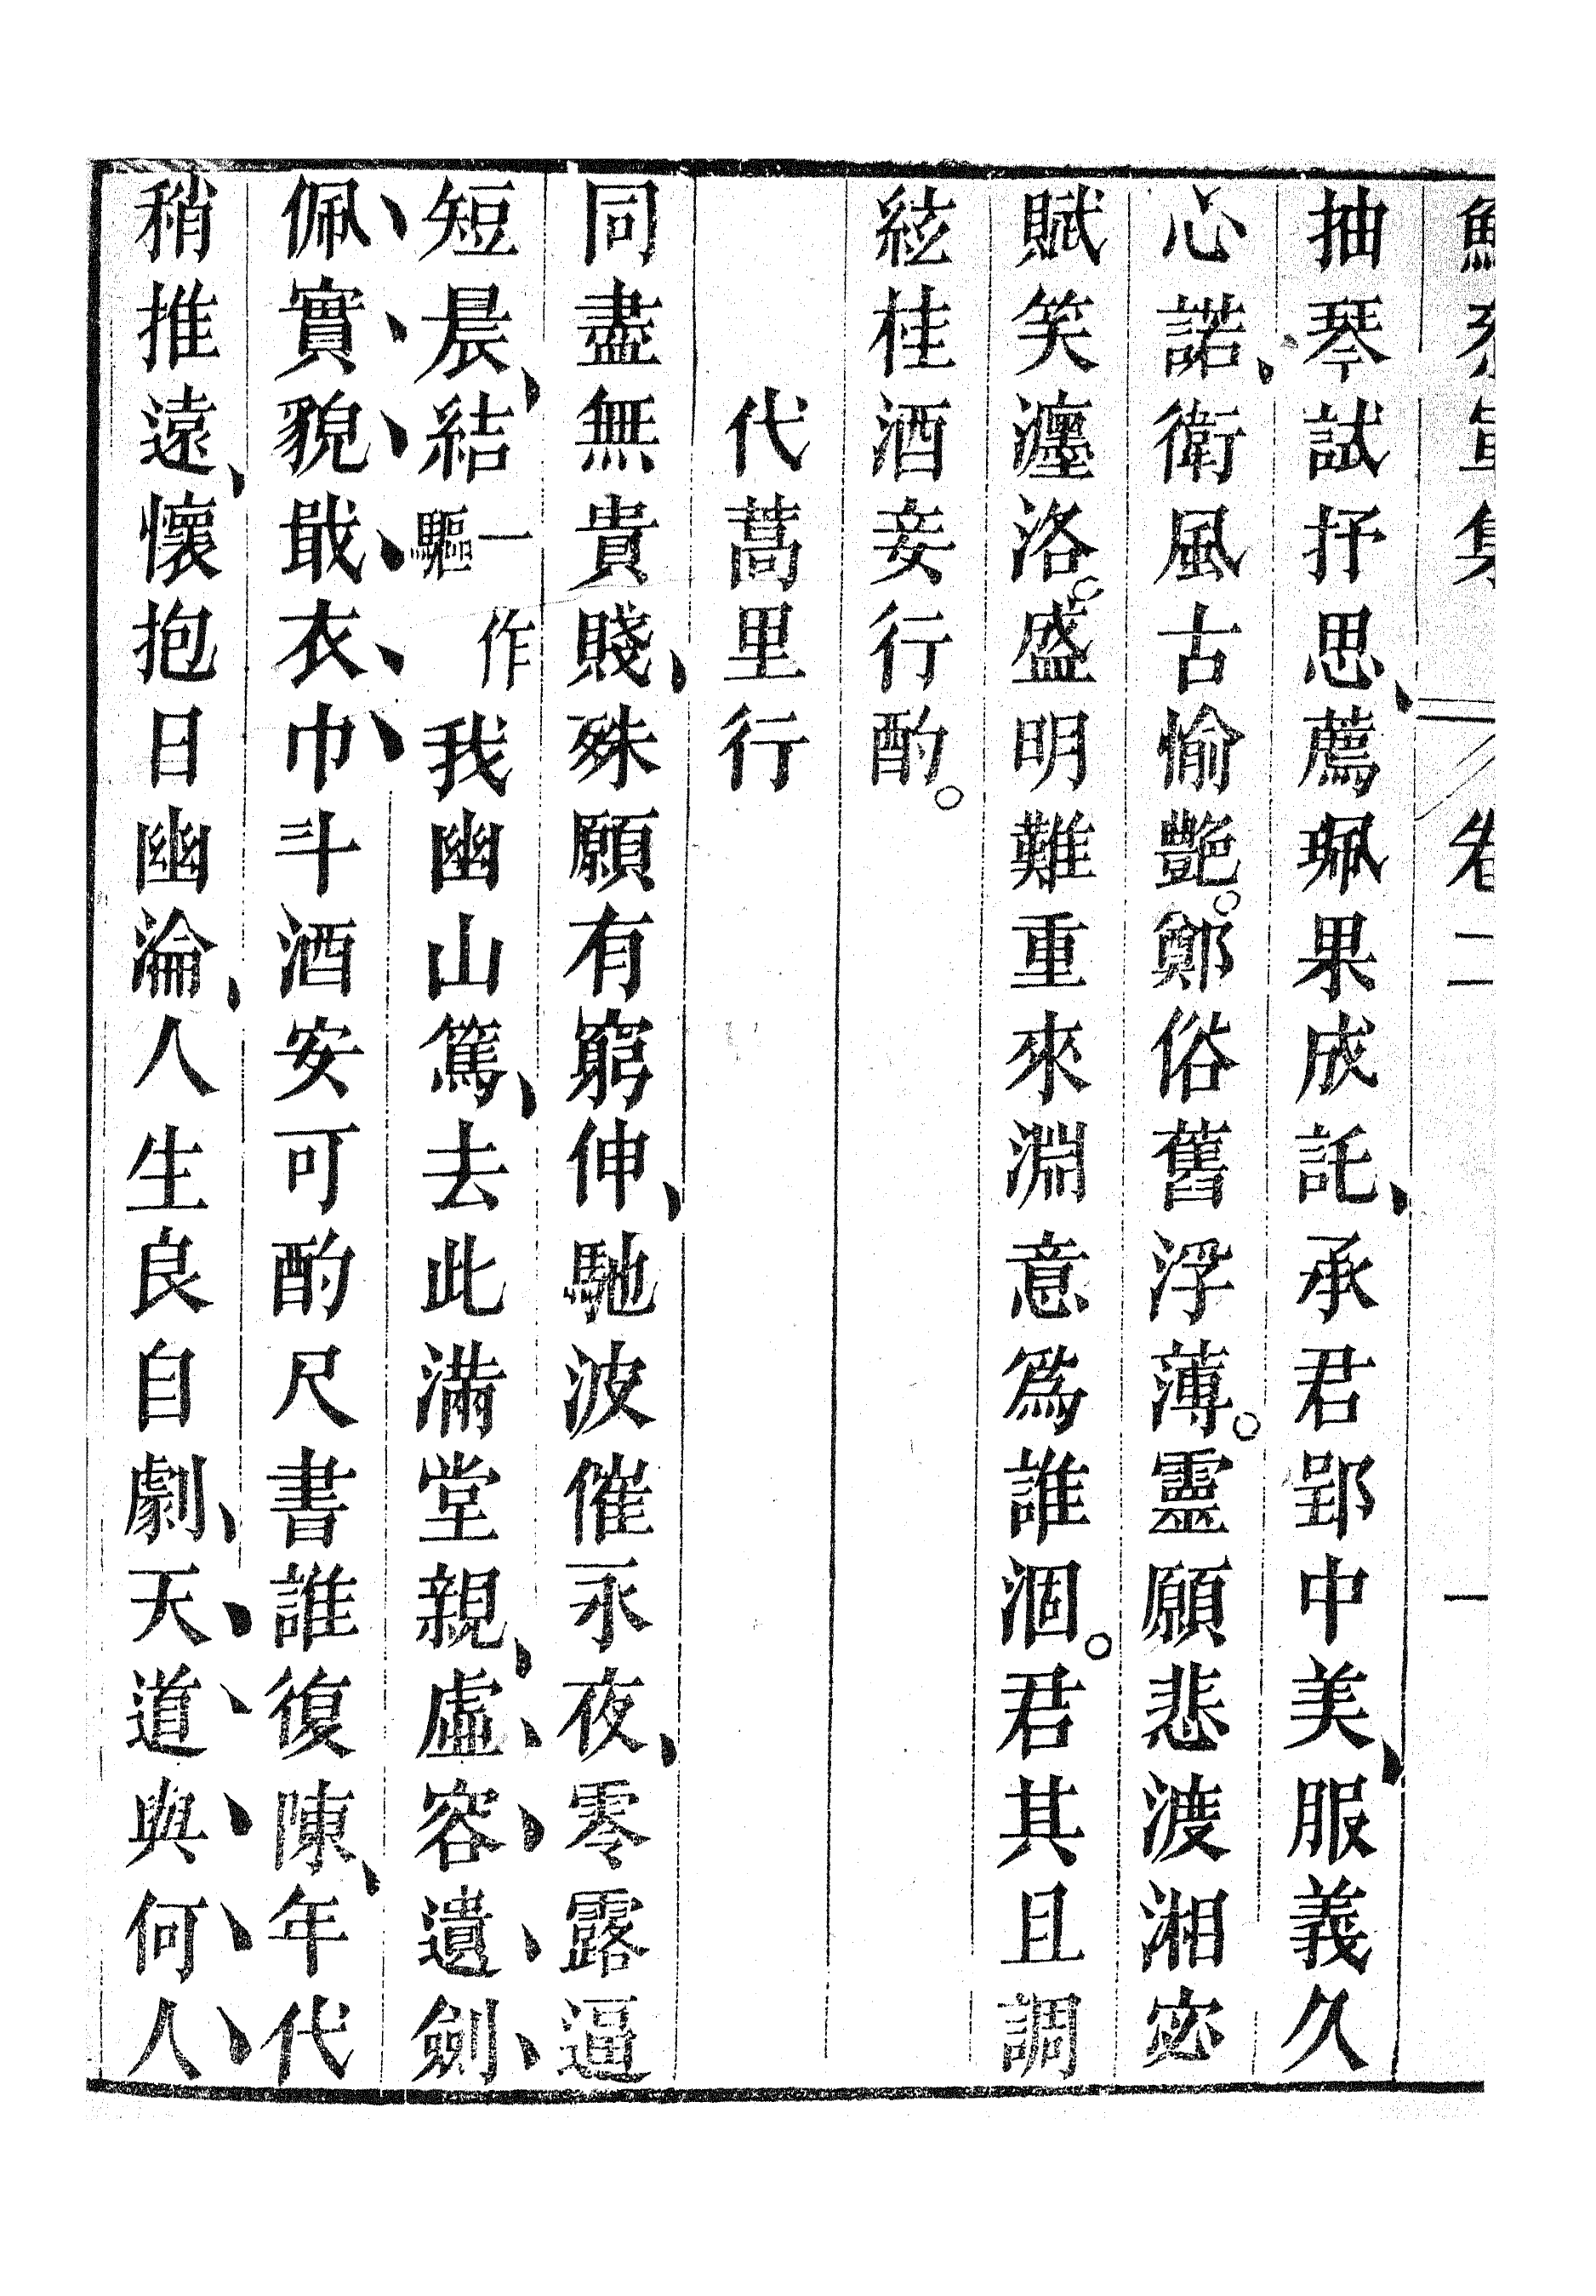 鮑參軍集　卷二　一
抽琴試抒思、薦珮果成託、承君郢中美、服義久
心諾、衛風古愉艷。鄭俗舊浮薄。靈願悲渡湘宓
賦笑瀍洛。盛明難重來淵意爲誰涸。君其且調
絃桂酒妾行酌。
代蒿里行
同盡無貴賤、殊願有窮伸、馳波催永夜、零露逼
短晨、結一作驅我幽山篤、去此滿堂親、虛、容、遺、劍、
佩、實、貌、戢、衣、巾、斗酒安可酌尺書誰復陳、年代
稍推遠、懷抱日幽淪、人生良自劇、天、道、與、何、人、